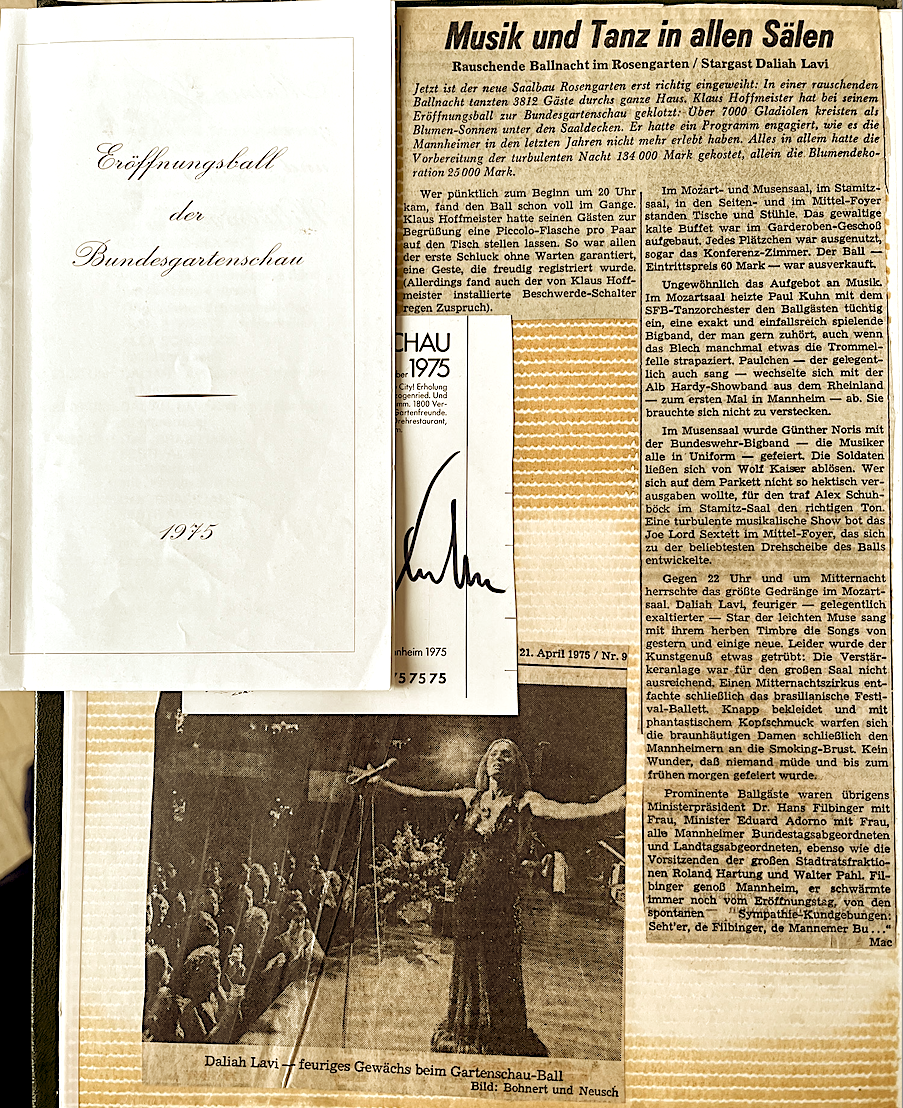 Eröffnungsball
der
Bundesgartenschau
1975
Musik und Tanz in allen Sälen
Rauschende Ballnacht im Rosengarten / Stargast Daliah Lavi
Jetzt ist der neue Saalbau Rosengarten erst richtig eingeweiht: In einer rauschenden
Ballnacht tanzten 3812 Gäste durchs ganze Haus. Klaus Hoffmeister hat bei seinem
Eröffnungsball zur Bundesgartenschau geklotzt: Über 7000 Gladiolen kreisten als
Blumen-Sonnen unter den Saaldecken. Er hatte ein Programm engagiert, wie es die
Mannheimer in den letzten Jahren nicht mehr erlebt haben. Alles in allem hatte die
Vorbereitung der turbulenten Nacht 134 000 Mark gekostet, allein die Blumendeko-
ration 25 000 Mark.
Wer pünktlich zum Beginn um 20 Uhr
kam, fand den Ball schon voll im Gange.
Klaus Hoffmeister hatte seinen Gästen zur
Begrüßung eine Piccolo-Flasche pro Paar
auf den Tisch stellen lassen. So war allen
der erste Schluck ohne Warten garantiert,
eine Geste, die freudig registriert wurde.
(Allerdings fand auch der von Klaus Hoff-
meister installierte Beschwerde-Schalter
regen Zuspruch).
Im Mozart- und Musensaal, im Stamitz-
saal, in den Seiten- und im Mittel-Foyer
standen Tische und Stühle. Das gewaltige
kalte Buffet war im Garderoben-Geschoß
aufgebaut. Jedes Plätzchen war ausgenutzt,
sogar das Konferenz-Zimmer. Der Ball —
Eintrittspreis 60 Mark — war ausverkauft.
Ungewöhnlich das Aufgebot an Musik.
Im Mozartsaal heizte Paul Kuhn mit dem
SFB-Tanzorchester den Ballgästen tüchtig
ein, eine exakt und einfallsreich spielende
Bigband, der man gern zuhört, auch wenn
das Blech manchmal etwas die Trommel-
felle strapaziert. Paulchen — der gelegent-
lich auch sang — wechselte sich mit der
Alb Hardy-Showband aus dem Rheinland
— zum ersten Mal in Mannheim — ab. Sie
brauchte sich nicht zu verstecken.
Im Musensaal wurde Günther Noris mit
der Bundeswehr-Bigband — die Musiker
alle in Uniform — gefeiert. Die Soldaten
ließen sich von Wolf Kaiser ablösen. Wer
sich auf dem Parkett nicht so hektisch ver-
ausgaben wollte, für den traf Alex Schuh-
böck im Stamitz-Saal den richtigen Ton.
Eine turbulente musikalische Show bot das
Joe Lord Sextett im Mittel-Foyer, das sich
zu der beliebtesten Drehscheibe des Balls
entwickelte.
Gegen 22 Uhr und um Mitternacht
herrschte das größte Gedränge im Mozart-
saal. Daliah Lavi, feuriger — gelegentlich
exaltierter — Star der leichten Muse sang
mit ihrem herben Timbre die Songs von
gestern und einige neue. Leider wurde der
Kunstgenuß etwas getrübt: Die Verstär-
keranlage war für den großen Saal nicht
ausreichend. Einen Mitternachtszirkus ent-
fachte schließlich das brasilianische Festi-
val-Ballett. Knapp bekleidet und mit
phantastischem Kopfschmuck warfen sich
die braunhäutigen Damen schließlich den
Mannheimern an die Smoking-Brust. Kein
Wunder, daß niemand müde und bis zum
frühen morgen gefeiert wurde.
Prominente Ballgäste waren übrigens
Ministerpräsident Dr. Hans Filbinger mit
Frau, Minister Eduard Adorno mit Frau,
alle Mannheimer Bundestagsabgeordneten
und Landtagsabgeordneten, ebenso wie die
Vorsitzenden der großen Stadtratsfraktio-
nen Roland Hartung und Walter Pahl. Fil-
binger genoß Mannheim, er schwärmte
immer noch vom Eröffnungstag, von den
spontanen — "Sympathie-Kundgebungen:
Seht'er, de Filbinger, de Mannemer Bu . . ."
Mac
CHAU
ber 1975
City! Erholung
rogenried. Und
mm. 1800 Ver-
Gartenfreunde.
Drehrestaurant,
nnheim 1975
75 75 75
21. April 1975 / Nr. 9
Daliah Lavi — feuriges Gewächs beim Gartenschau-Ball
Bild: Bohnert und Neusch